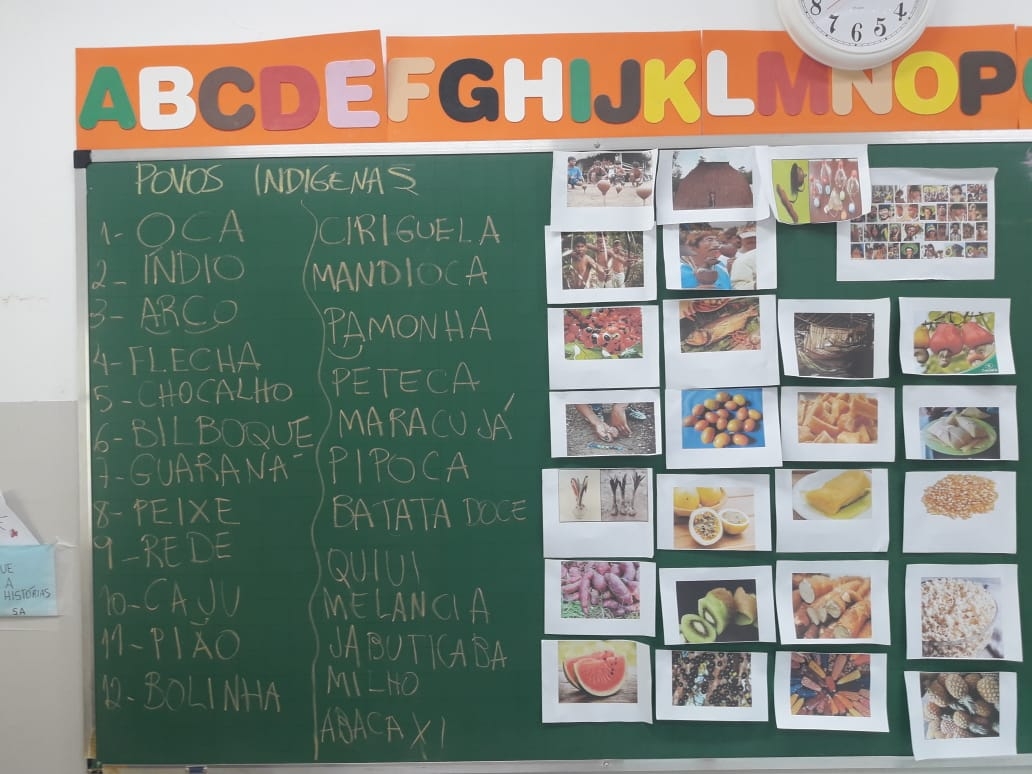 8 7 6 5 4
ABCDEFGHIJKLMNOP
POVOS INDIGENAS
1- OCA
2- ÍNDIO
3- ARCO
4- FLECHA
5- CHOCALHO
6- BILBOQUE
7- GUARANÁ
8- PEIXE
9- REDE
10- CAJU
11- PIÃO
12- BOLINHA
CIRIGUELA
MANDIOCA
PAMONHA
PETECA
MARACUJÁ
PIPOCA
BATATA DOCE
QUIUI
MELANCIA
JABUTICABA
MILHO
ABACAXI
UE
A
HISTÓRIAS
SA